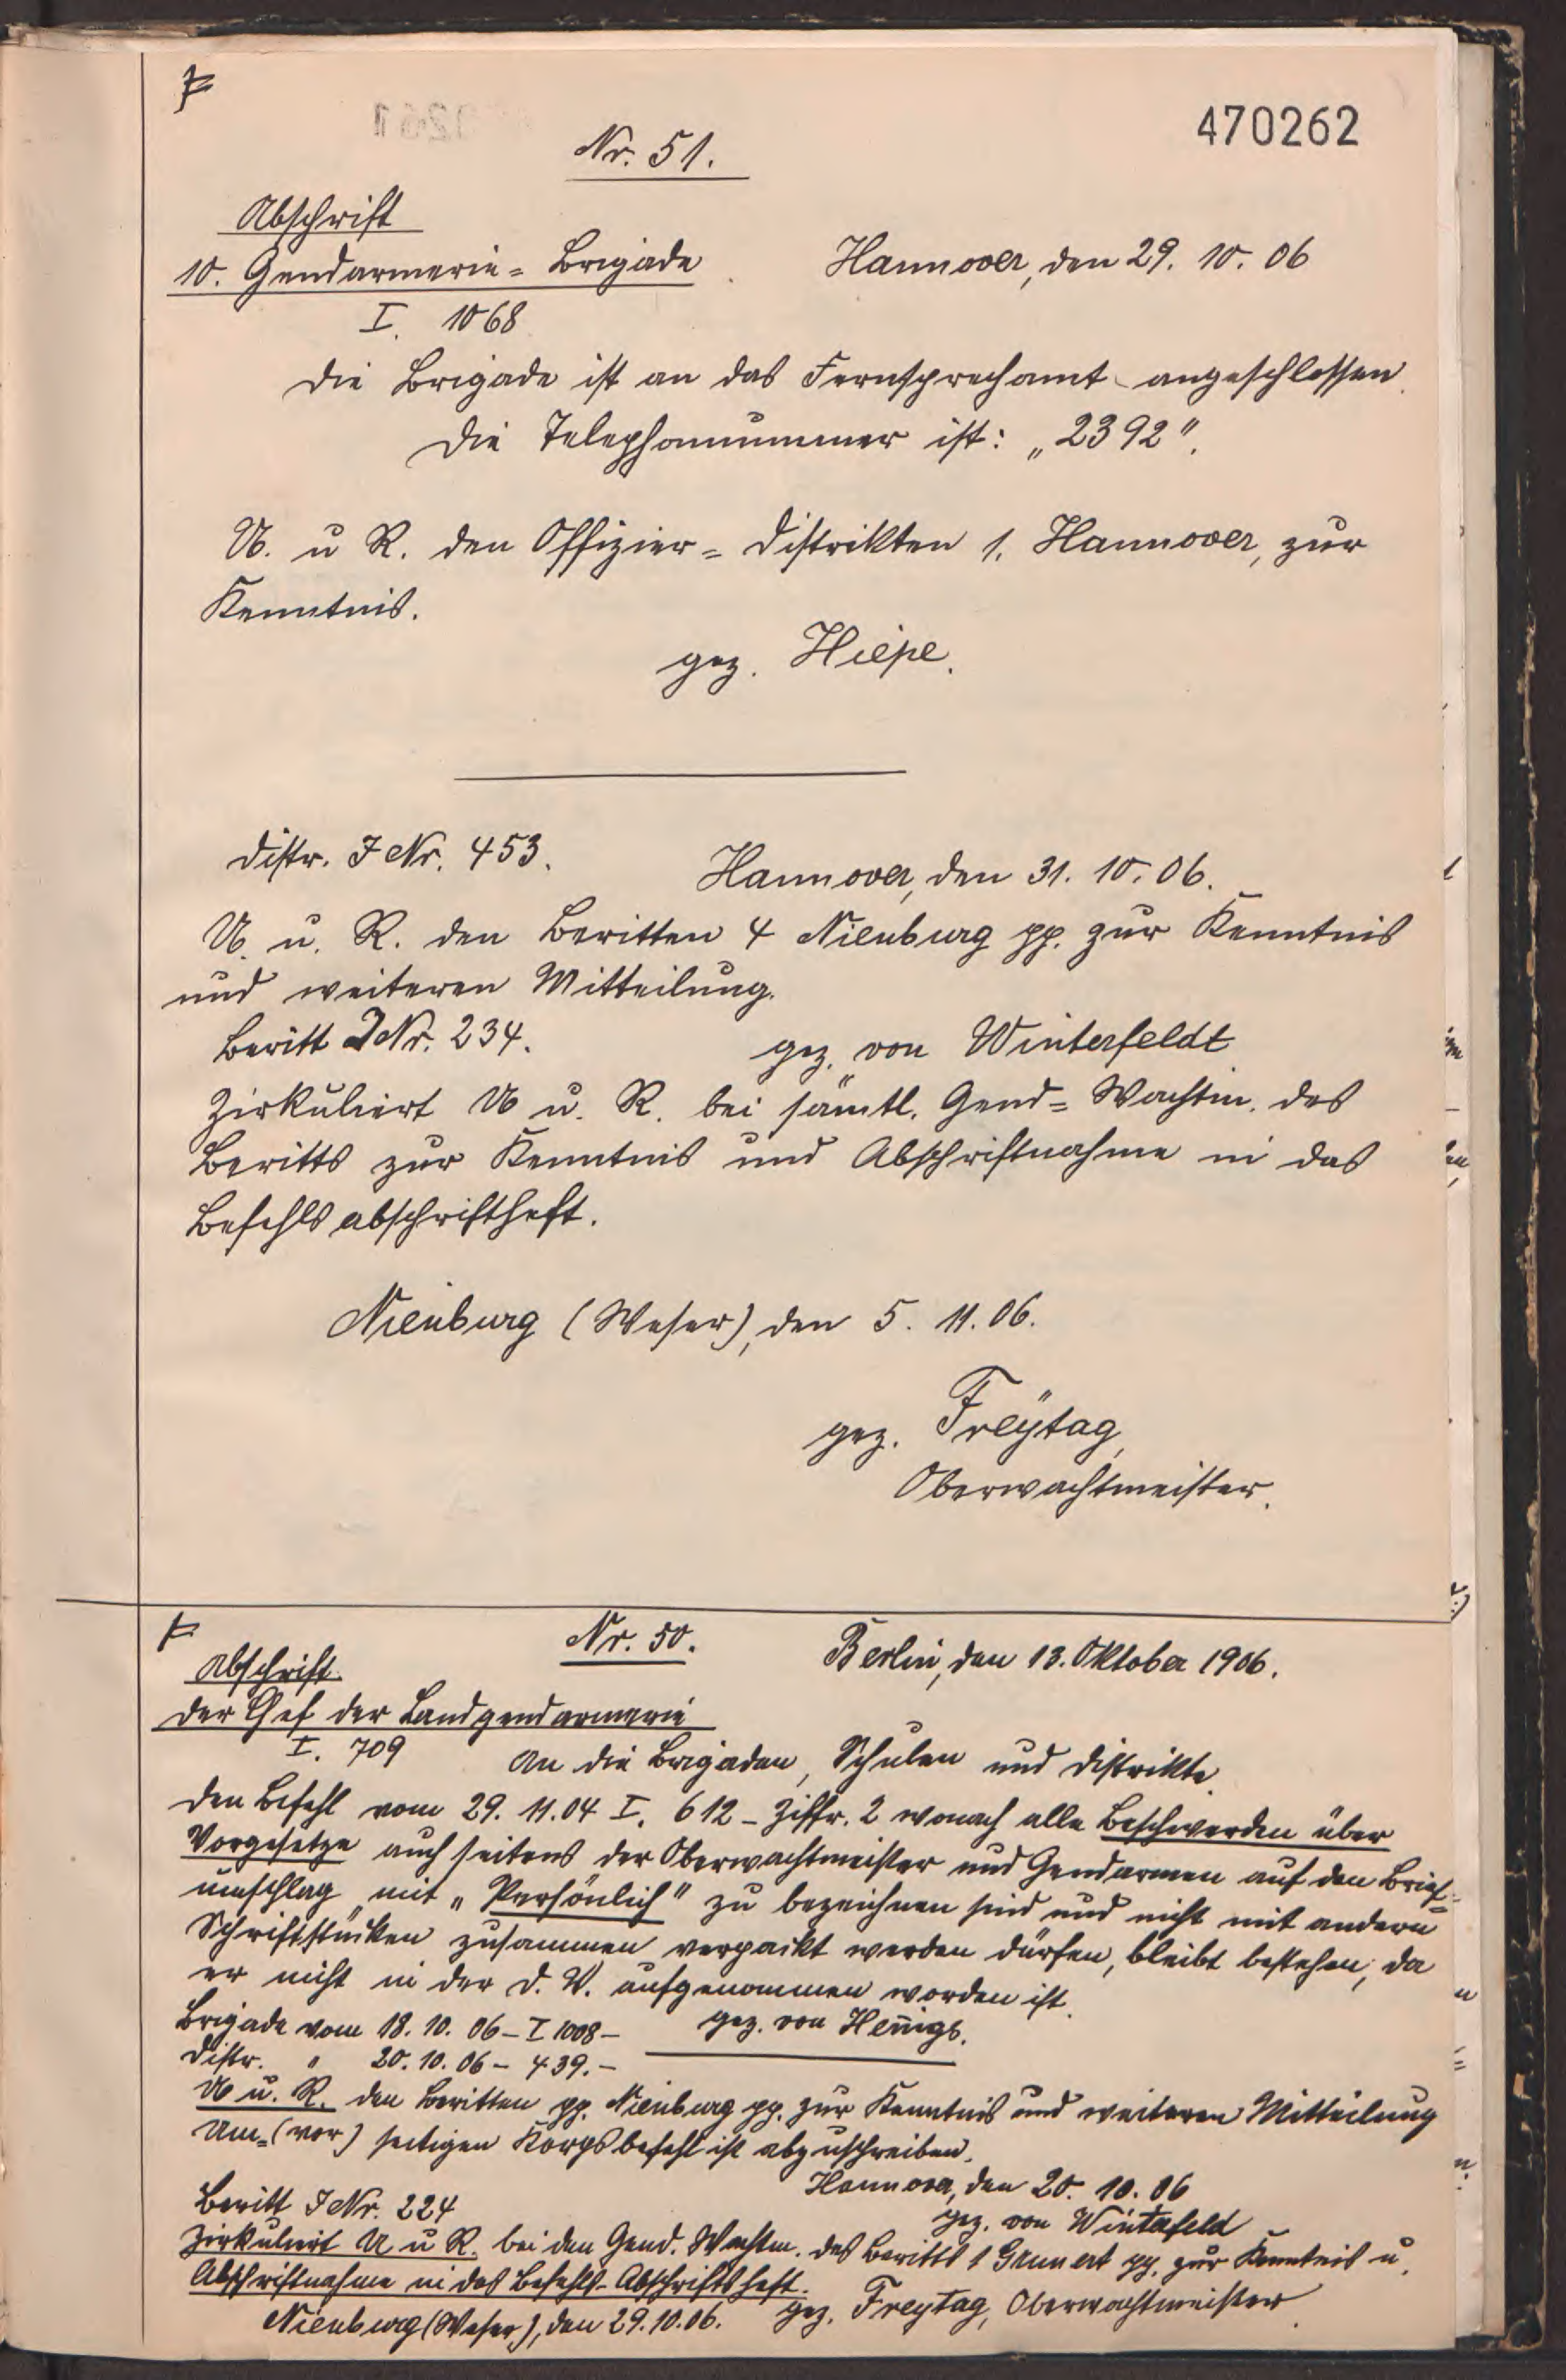 470262
Nr. 51.
Abschrift
10. Gendarmerie= Brigade Hannover, den 29. 10. 06
I. 1068
Die Brigade ist an das Fernsprechamt angeschlossen.
Die Telephonnummer ist: „2392".
U. u R. den Offizier= Distrikten 1. Hannover, zur
Kenntnis.
gez. Hiepe.
Distr. J Nr. 453. Hannover, den 31. 10. 06.
U. u. R. den Beritten 4 Nienburg pp. zur Kenntnis
und weiteren Mitteilung.
Beritt J Nr. 234. gez. von Winterfeldt
Zirkuliert U u. R. bei sämtl. Gend= Wachtm. des
Beritts zur Kenntnis und Abschriftnahme in das
Befehlsabschriftheft.
Nienburg (Weser), den 5. 11. 06.
gez. Freÿtag,
Oberwachtmeister.
Nr. 50. Berlin, den 13. Oktober 1906.
Abschrift.
Der Chef der Landgendarmerie
I. 709 An die Brigaden, Schulen und Distrikte.
Den Befehl vom 29. 11. 04 I. 612 – Ziffr. 2 wonach alle Beschwerden über
Vorgesetze auch seitens der Oberwachtmeister und Gendarmen auf den Brief=
umschlag mit „Persönlich" zu bezeichnen sind und nicht mit andern
Schriftstücken zusammen verpackt werden dürfen, bleibt bestehen, da
er nicht in der D. V. aufgenommen worden ist.
Brigade vom 18. 10. 06 – I 1008 – gez. von Hennigs.
Distr. " 20. 10. 06 – 439. –
U u. R. den Beritten pp. Nienburg pp. zur Kenntnis und weiteren Mitteilung
Um= (vor) seitigen Korpsbefehl ist abzuschreiben.
Hannover, den 20. 10. 06
Beritt J Nr. 224 gez. von Winterfeld
Zirkuliert U u R. bei den Gend. Wachtm. des Beritts 1 Grunert pp. zur Kenntnis u.
Abschriftnahme in das Befehls-Abschriftsheft.
Nienburg (Weser), den 29. 10. 06. gez. Freytag, Oberwachtmeister